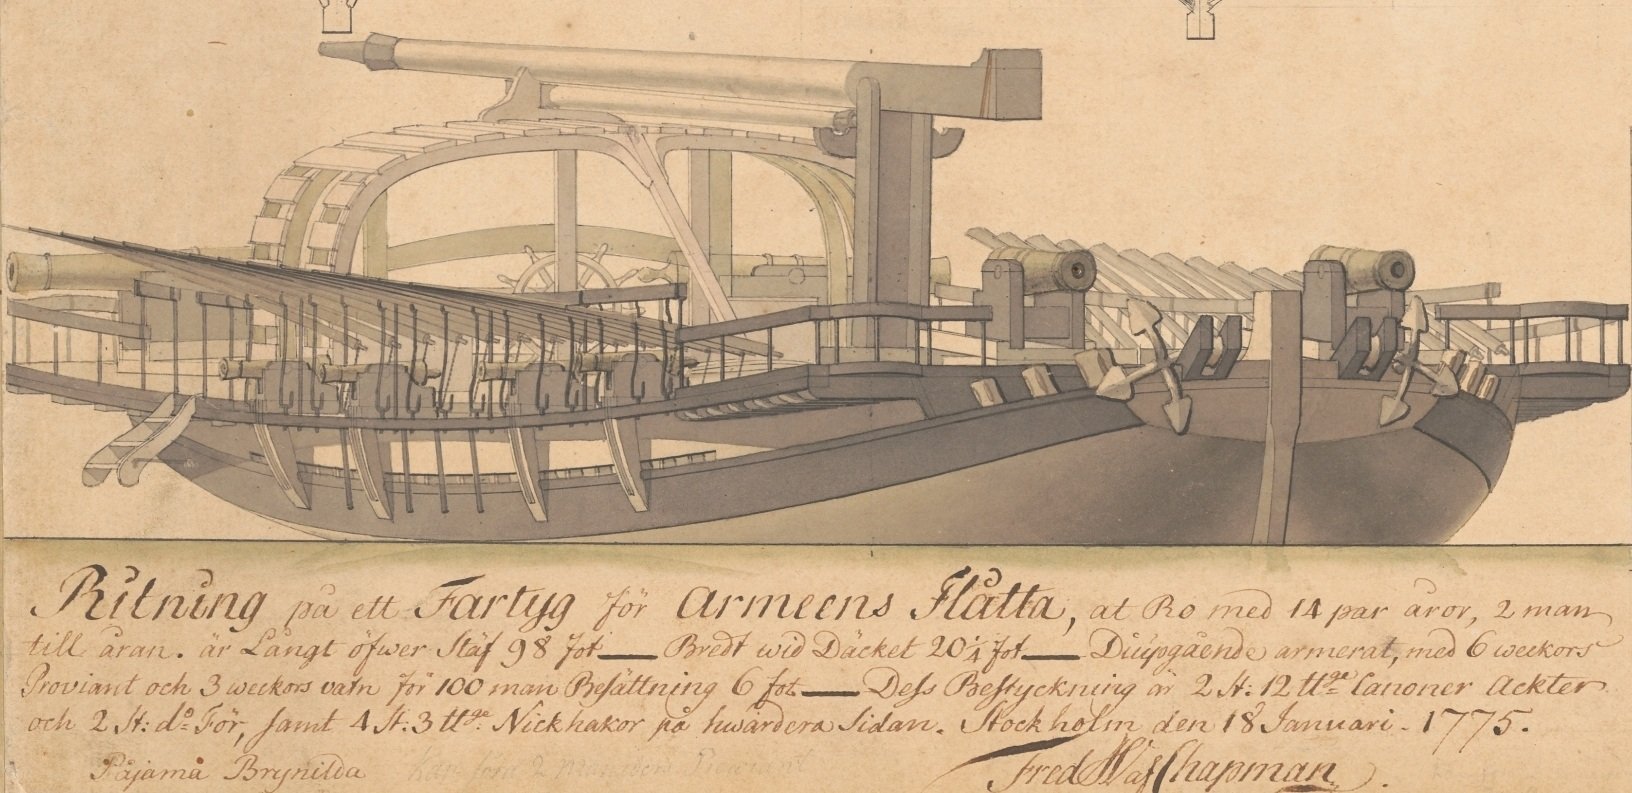 Ritning på ett Fartyg för Armeens Flåtta, at Ro med 14 par åror, 2 man
till åran. är Långt öfwer Stäf 98 fot — Bredt wid Däcket 20 1/4 fot — Diupgående armerat, med 6 weckors
Proviant och 3 weckors vatn för 100 man Besättning 6 fot — Dess Bestyckning är 2 St: 12 ttge Canoner Ackter
och 2 St: do För, samt 4 St. 3 ttge Nickhakor på hwardera Sidan. Stockholm den 18 Januari - 1775.
Påjama Brynilda
Fred H af Chapman